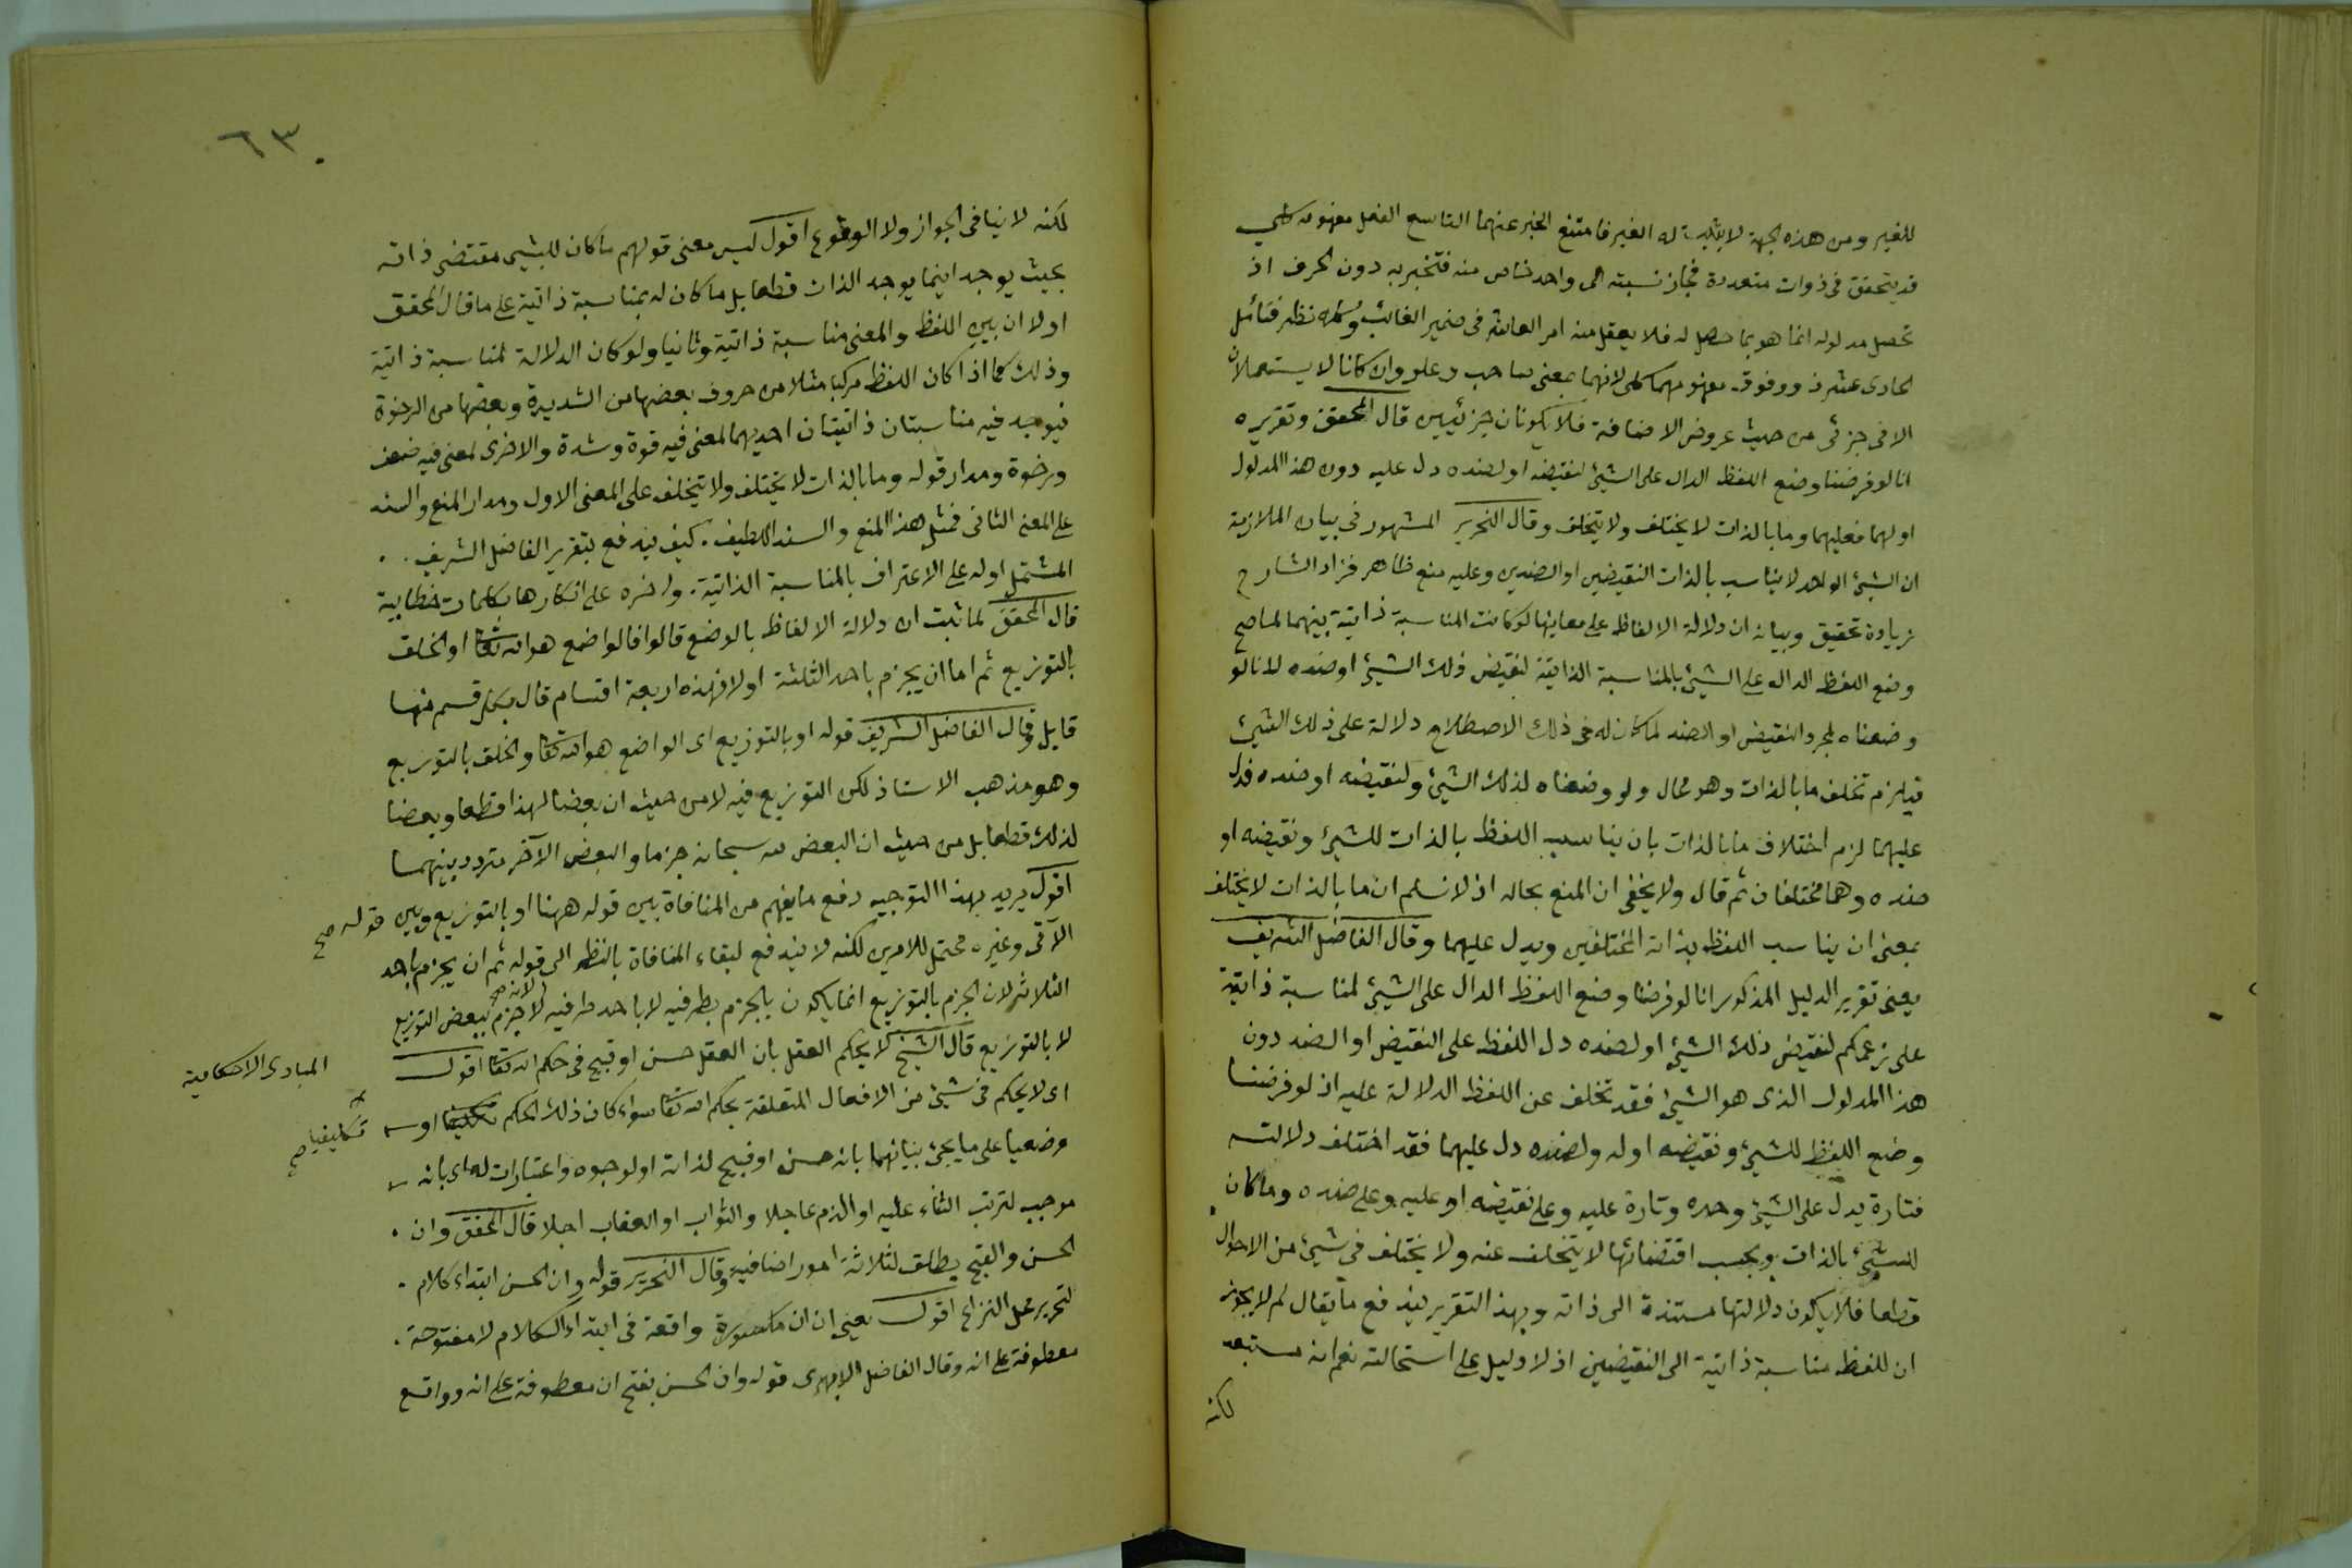 للغير ومن هذه الجهة لا يثبت له الغير فامتنع الخبر عنهما التاسع الفعل مفهومه كلي
قد يتحقق في ذوات متعددة فجاز نسبته الى واحد خاص منه فتخبر به دون الحرف اذ
تحصل مدلوله انما هو بما حصل له فلا يعقل منه امر العاشر في ضمير الغائب نظر فتأمل
الحادى عشر ذو وفوق مفهومهما كلي لانهما بمعنى صاحب وعلو وان كانا لا يستعملان
الا في جزئي من حيث عروض الاضافة فلا يكونان جزئيين قال المحقق وتقريره
انا لو فرضنا وضع اللفظ الدال على الشيئ لنقيضه او لضده دل عليه دون هذا المدلول
او لهما فعليهما وما بالذات لا يختلف ولا يتخلف وقال النحرير المشهور في بيان الملازمة
ان الشيئ الواحد لا يناسب بالذات النقيضين او الضدين وعليه منع ظاهر فزاد الشارح
زيادة تحقيق وبيانه ان دلالة الالفاظ على معانيها لو كانت المناسبة ذاتية بينهما لما صح
وضع اللفظ الدال على الشيئ بالمناسبة الذاتية لنقيض ذلك الشيئ او ضده لانا لو
وضعناه لمجرد النقيض او الضد لما كان له في ذلك الاصطلاح دلالة على ذلك الشيئ
فيلزم تخلف ما بالذات وهو محال ولو وضعناه لذلك الشيئ ولنقيضه او ضده فدل
عليهما لزم اختلاف ما بالذات بان يناسب اللفظ بالذات للشيئ ونقيضه او
ضده وهما مختلفان ثم قال ولا يخفى ان المنع بحاله اذ لا نسلم ان ما بالذات لا يختلف
بمعنى ان يناسب اللفظ بذاته المختلفين ويدل عليهما وقال الفاضل الشريف
يعنى تقرير الدليل المذكور انا لو فرضنا وضع اللفظ الدال على الشيئ لمناسبة ذاتية
على زعمكم لنقيض ذلك الشيئ او لضده دل اللفظ على النقيض او الضد دون
هذا المدلول الذى هو الشيئ فقد تخلف عن اللفظ الدلالة عليه اذ لو فرضنا
وضع اللفظ للشيئ ونقيضه او له ولضده دل عليهما فقد اختلف دلالته
فتارة يدل على الشيئ وحده وتارة عليه وعلى نقيضه او عليه وعلى ضده وما كان
للشيئ بالذات وبحسب اقتضائها لا يتخلف عنه ولا يختلف في شيئ من الاحوال
قطعا فلا يكون دلالتها مستندة الى ذاته وبهذا التقرير يندفع ما يقال لم لا يجوز
ان للفظ مناسبة ذاتية الى النقيضين اذ لا دليل على استحالته نعم انه مستبعد
لكنه
٦٣
لكنه لا ينافى الجواز ولا الوقوع اقول ليس معنى قولهم ما كان للشيئ مقتضى ذاته
بحيث يوجد اينما يوجد الذات قطعا بل ما كان له بمناسبة ذاتية على ما قال المحقق
اولا ان بين اللفظ والمعنى مناسبة ذاتية وثانيا ولو كان الدلالة لمناسبة ذاتية
وذلك كما اذا كان اللفظ مركبا مثلا من حروف بعضها من الشديدة وبعضها من الرخوة
فيوجد فيه مناسبتان ذاتيتان احديهما لمعنى فيه قوة وشدة والاخرى لمعنى فيه ضعف
ورخوة ومدار قوله وما بالذات لا يختلف ولا يتخلف على المعنى الاول ومدار المنع والسند
على المعنى الثانى فمثل هذا المنع والسند اللطيف كيف يندفع بتقرير الفاضل الشريف
المشتمل اوله على الاعتراف بالمناسبة الذاتية واخره على انكارها بكلمات خطابية
قال المحقق لما ثبت ان دلالة الالفاظ بالوضع قالوا فالواضع هو الله تعا او الخلق
بالتوزيع ثم اما ان يجزم باحد الثلثة اولا فهذه اربعة اقسام قال بكل قسم منها
قايل وقال الفاضل الشريف قوله او بالتوزيع اى الواضع هو الله تعا والخلق بالتوزيع
وهو مذهب الاستاذ لكن التوزيع فيه لا من حيث ان بعضا لهذا قطعا وبعضا
لذلك قطعا بل من حيث ان البعض له سبحانه جزما والبعض الآخر متردد بينهما
اقول يريد بهذا التوجيه دفع ما يفهم من المنافاة بين قوله ههنا او بالتوزيع وبين قوله صح
الآتى وغيره محتمل للامرين لكنه لا يندفع لبقاء المنافاة بالنظر الى قوله ثم ان يجزم باحد
الثلاثة لان الجزم بالتوزيع انما يكون بالجزم بطرفيه لا باحد طرفيه لانه صح لا جزم ببعض التوزيع
لا بالتوزيع قال الشيخ لا يحكم العقل بان العقل حسن او قبيح في حكم الله تعا اقول
المبادى الاحكامية
اى لا يحكم في شيئ من الافعال المتعلقة بحكم الله تعا سواء كان ذلك الحكم او
تكليفيا صح
وضعيا على ما يجئ بيانهما بانه حسن او قبيح لذاته او لوجوه واعتبارات له اى بانه
موجب لترتب الثناء عليه او الذم عاجلا والثواب او العقاب اجلا قال المحقق وان
الحسن والقبح يطلق لثلاثة امور اضافية وقال النحرير قوله وان الحسن ابتداء كلام
لتحرير محل النزاع اقول يعنى ان ان مكسورة واقعة في ابتداء الكلام لا مفتوحة
معطوفة على انه وقال الفاضل الابهرى قوله وان الحسن بفتح ان معطوفة على انه وواقع